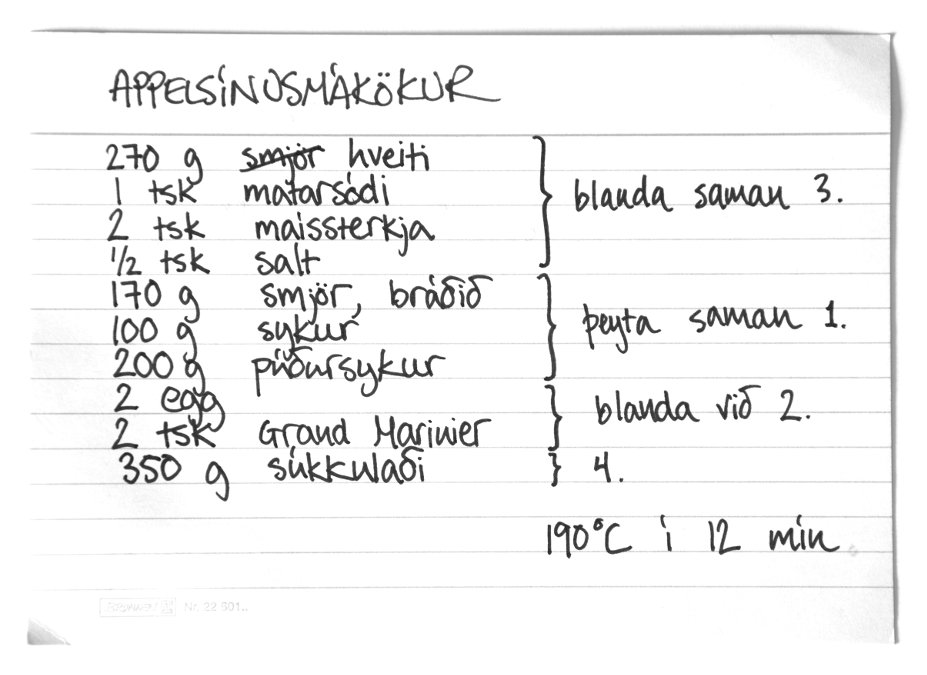 APPELSÍNUSMÁKÖKUR
270 g smjör hveiti
1 tsk matarsódi
2 tsk maissterkja
½ tsk salt
blanda saman 3.
170 g smjör, bráðið
100 g sykur
200 g púðursykur
þeyta saman 1.
2 egg
2 tsk Grand Marinier
blanda við 2.
350 g súkkulaði
4.
190°C í 12 mín
Nr. 22 501